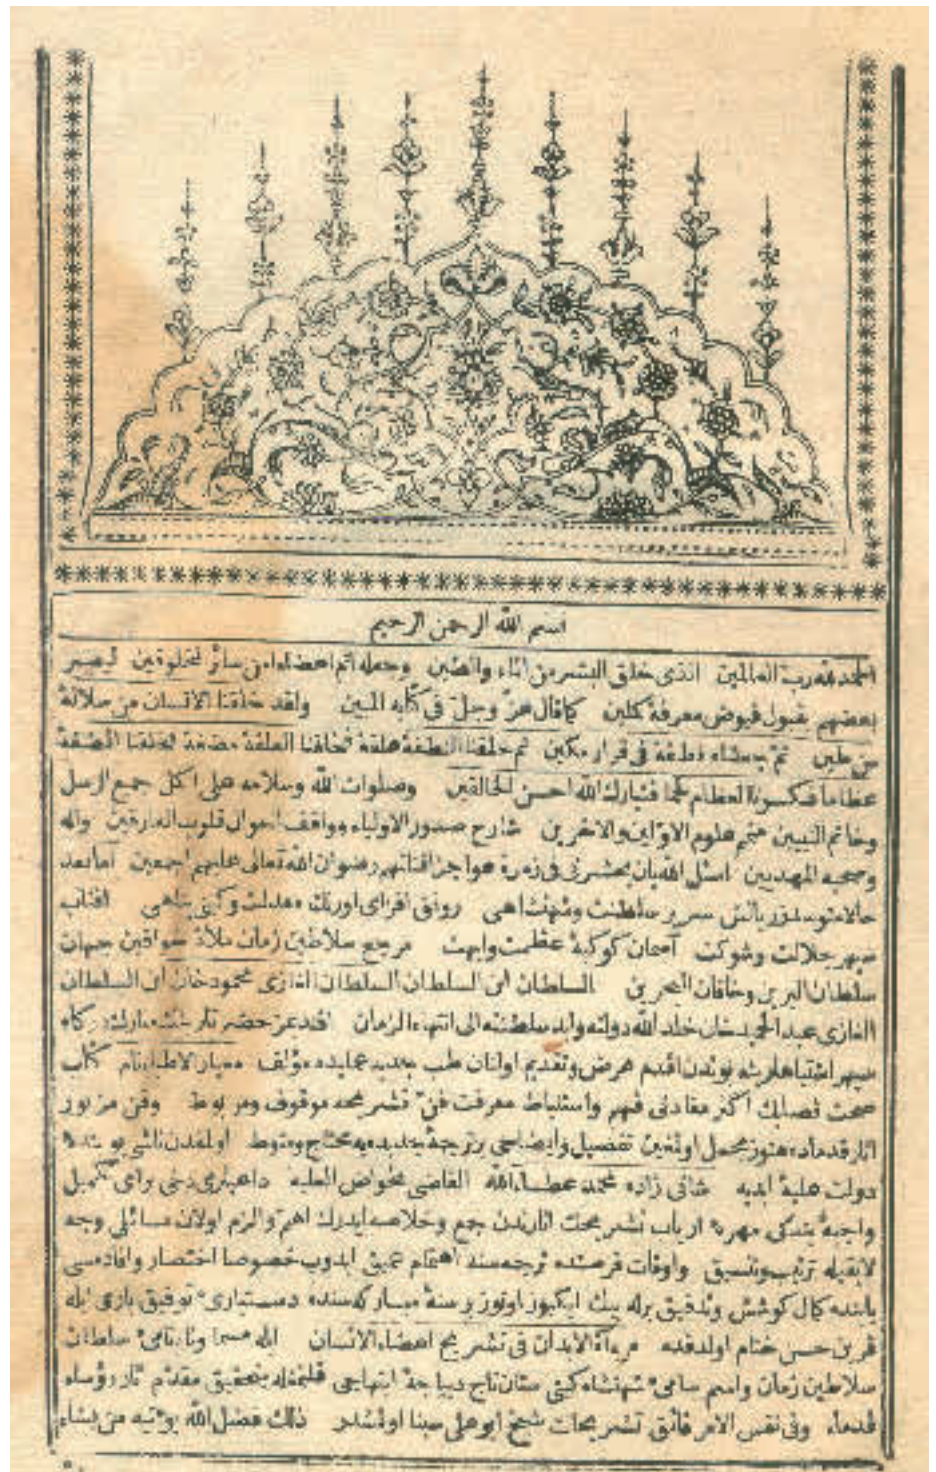 بسم الله الرحمن الرحيم
الحمد لله رب العالمين الذى خلق البشر من الماء والطين وجعله اتم اعضاء من سائر مخلوقين ليصير
بعضهم بقبول فيوض معرفة كملين كما قال عز وجل فى كتابه المبين ولقد خلقنا الانسان من سلالة
من طين ثم جعلناه نطفة فى قرار مكين ثم خلقنا النطفة علقة فخلقنا العلقة مضغة فخلقنا المضغة
عظاما فكسونا العظام لحما فتبارك الله احسن الخالقين وصلوات الله وسلامه على اكمل جميع الرسل
وخاتم النبيين علوم الاولين والآخرين شارح صدور الاولياء وواقف احوال قلوب العارفين وآله
وصحبه المهديين اسئل الله بان يحشرنى فى زمرة رضوان الله تعالى عليهم اجمعين اما بعد
سرير سلطنت وشهنشاهى رونق افزاى اورنك معدلت وكيتى پناهى افتاب
سپهر جلالت وشوكت آسمان كوكبهٔ عظمت وابهت مرجع سلاطين زمان ملاذ خواقين جهان
سلطان البرين وخاقان البحرين السلطان ابن السلطان السلطان الغازى محمود خان ابن السلطان
الغازى عبد الحميد خان خلد الله دولته وابد سلطنته الى انتهاء الزمان افندمز حضرتلرينك مبارك دركاه
سپهر اشتباهلرينه بوندن اقدم عرض وتقديم اولنان طب جديد مؤلف معيار الاطبا نام كتاب
صحت فصلينك اكثر مفادنى فهم واستنباط معرفت فن تشريحه موقوف ومربوط وفن مزبور
آثار قدماده هنوز مجمل اولديغندن تفصيل وايضاحى بر ترجمهٔ جديده يه محتاج ومنوط اولمغدن ناشى بو بندهٔ
دولت عليهٔ ابديه شانى زاده محمد عطاء الله القاضى داعيلرى دخى براى تكميل
واجبهٔ بندكى مهرهٔ ارباب تشريحك آثارندن جمع وخلاصه ايدرك اهم والزم اولان مسائلى وجه
لايقيله ترتيب وتنسيق واوقات فرصتده ترجمه سنه اهتمام عميق ايدوب خصوصا اختصار وافاده سى
بابنده كمال كوشش وتدقيق برله بيك ايكيوز اوتوز بر سنهٔ مباركه سنده دستيارى توفيق بارى ايله
قرين حسن ختام اولدقده مرآة الابدان فى تشريح اعضاء الانسان ايله مسما ونام نامىٔ سلطان
سلاطين زمان واسم سامىٔ شهنشاه كيتى ستان تاج ديباجهٔ ابتهاجى قلنمغله بتحقيق مقدم آثار رؤساء
قدماء وفى نفس الامر فائق تشريحات شيخ ابو على سينا اولمشدر ذلك فضل الله يؤتيه من يشاء